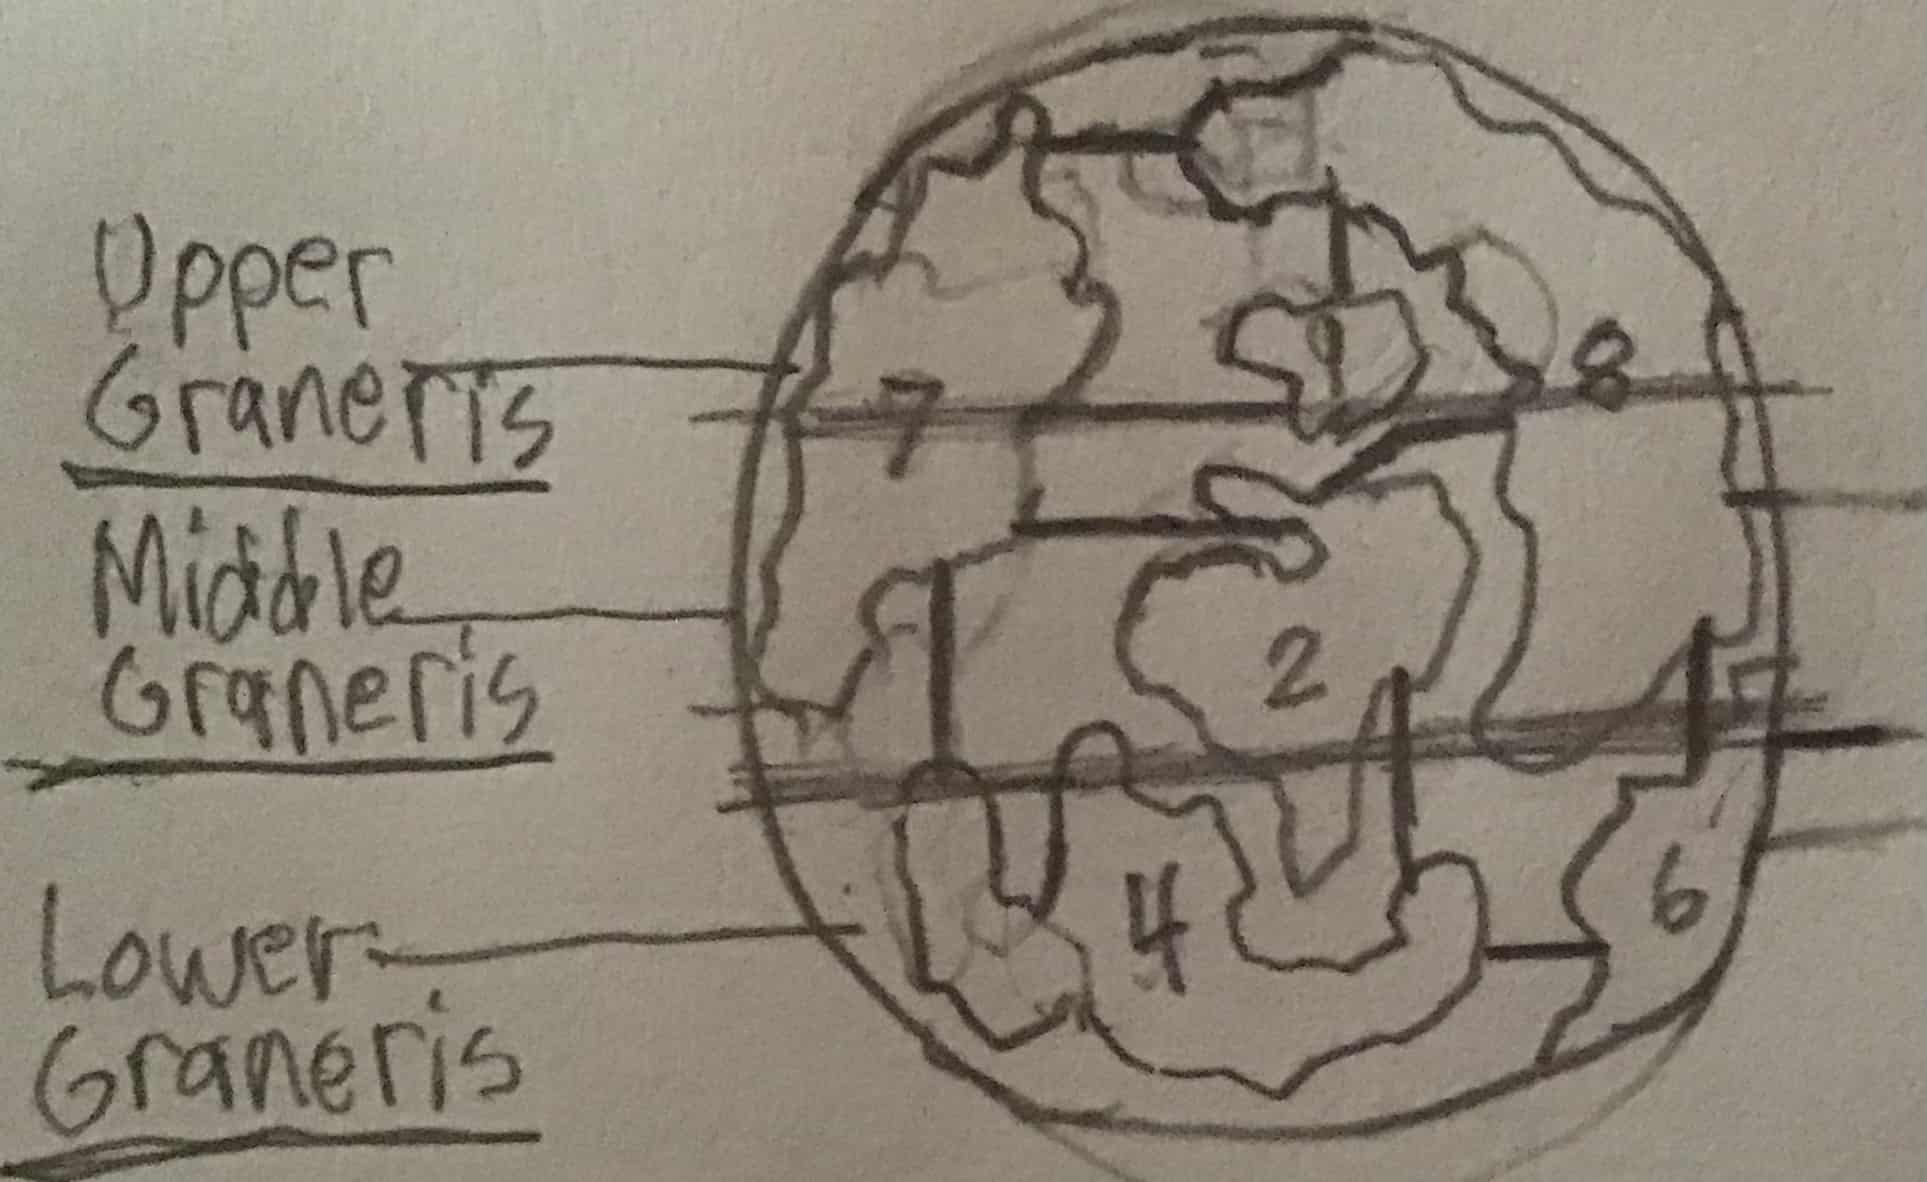 Upper
Graneris
Middle
Graneris
Lower
Graneris
7
1
8
2
4
6